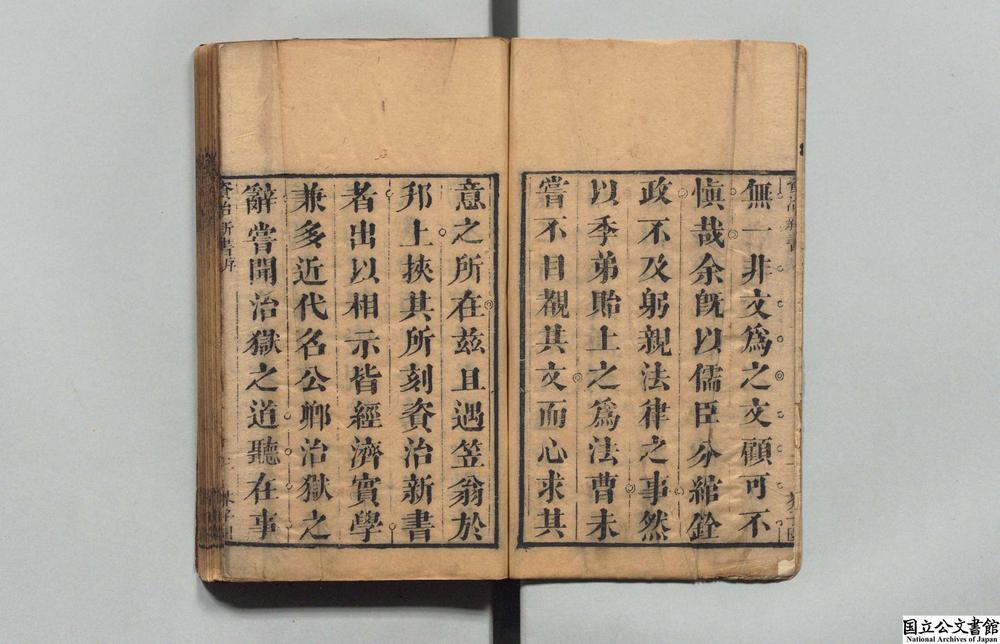 無一非文爲之文顧可不
愼哉余旣以儒臣分綰銓
政不及躬親法律之事然
以季弟貽上之爲法曹未
嘗不目覩其文而心求其
意之所在兹且遇笠翁於
邦上挾其所刻資治新書
者出以相示皆經濟實學
兼多近代名公鄉治獄之
辭嘗聞治獄之道聽在事
資治新書序
国立公文書館
National Archives of Japan